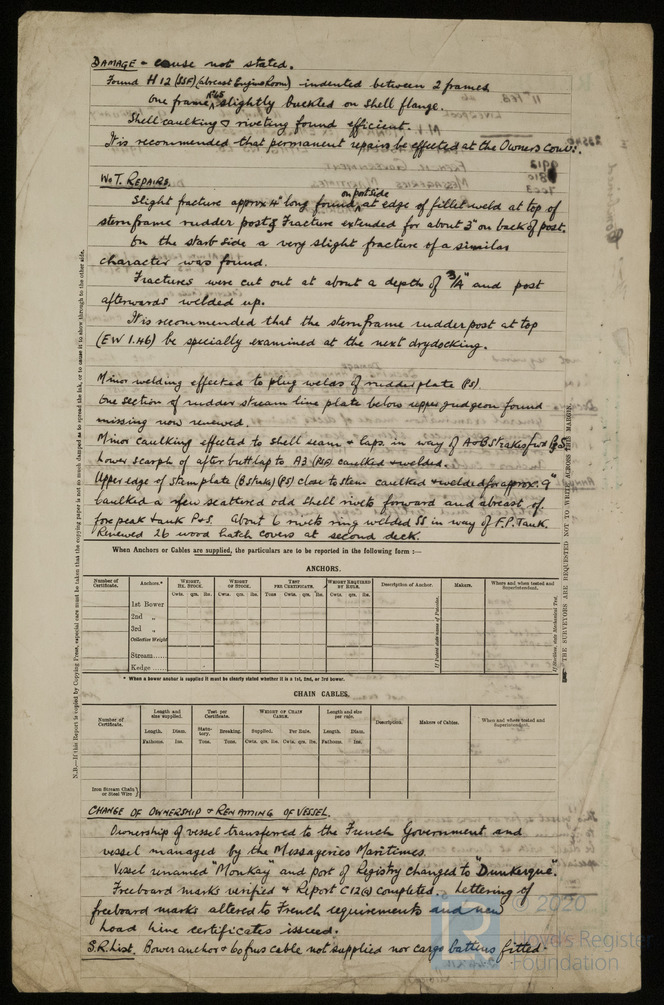 DAMAGE - cause not stated.
Found H12 (SSF) (abreast Engine Room) indented between 2 frames
One frame N°65 slightly buckled on shell flange.
Shell caulking & riveting found efficient.
It is recommended that permanent repairs be effected at the Owners Conv:.
W&T. REPAIRS.
Slight fracture approx 4" long found on port side at edge of fillet weld at top of
sternframe rudder post & fracture extended for about 3" on back of post.
On the starb side a very slight fracture of a similar
character was found.
Fractures were cut out at about a depth of 3/4" and post
afterwards welded up.
It is recommended that the sternframe rudder post at top
(EW 1.46) be specially examined at the next drydocking.
Minor welding effected to plug welds of rudder plate (PS).
One section of rudder stream line plate below upper gudgeon found
missing now renewed.
Minor caulking effected to shell seam & laps in way of A & B strakes fwd P&S.
Lower scarph of after butt lap to A3 caulked & welded.
Upper edge of stem plate (B strake) (PS) close to stem caulked & welded for approx. 9"
Caulked a few scattered odd shell rivets forward and abreast of
fore peak tank P&S. About 6 rivets ring welded SS in way of F.P. Tank.
Renewed 26 wood hatch covers at second deck.
When Anchors or Cables are supplied, the particulars are to be reported in the following form :—
ANCHORS.
Number of Certificate.
Anchors.*
WEIGHT, EX. STOCK.
WEIGHT OF STOCK.
TEST PER CERTIFICATE.
WEIGHT REQUIRED BY RULE.
Description of Anchor.
Makers.
Where and when tested and Superintendent.
Cwts. qrs. lbs.
Cwts. qrs. lbs.
Tons Cwts. qrs. lbs.
Cwts. qrs. lbs.
1st Bower
2nd "
3rd "
Collective Weight
Stream......
Kedge......
If Patent state name of Patentee.
If Steelless, state Mechanical Test.
* When a bower anchor is supplied it must be clearly stated whether it is a 1st, 2nd, or 3rd bower.
CHAIN CABLES.
Number of Certificate.
Length and size supplied.
Test per Certificate.
WEIGHT OF CHAIN CABLE.
Length and size per rule.
Description.
Makers of Cables.
When and where tested and Superintendent.
Length. Diam.
Statutory. Breaking.
Supplied. Per Rule.
Length. Diam.
Fathoms. Ins. Tons. Tons. Cwts. qrs. lbs. Cwts. qrs. lbs. Fathoms. Ins.
Iron Stream Chain or Steel Wire
CHANGE OF OWNERSHIP & RENAMING OF VESSEL.
Ownership of vessel transferred to the French Government and
vessel managed by the Messageries Maritimes.
Vessel renamed "Monkay" and port of Registry changed to "Dunkerque".
Freeboard marks verified & Report C12(a) completed. Lettering of
freeboard marks altered to French requirements and new
Load Line Certificates issued.
S.R. List. Bower anchor & 60 fms cable not supplied nor cargo battens fitted.
N.B.—If this Report is copied by Copying Press, especial care must be taken that the copying paper is not so much damped as to spread the ink, or to cause it to show through to the other side.
THE SURVEYORS ARE REQUESTED NOT TO WRITE ACROSS THE MARGIN.
© 2020
Lloyd's Register
Foundation